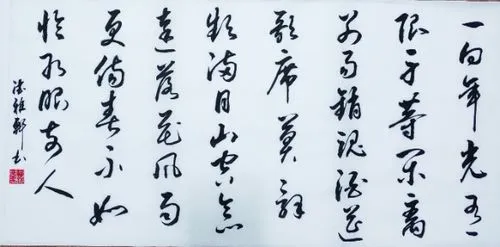 一向年光有
限身等闲離
别易销魂酒筵
歌席莫辞
频满目山河空念
遠落花風雨
更傷春不如
怜取眼前人